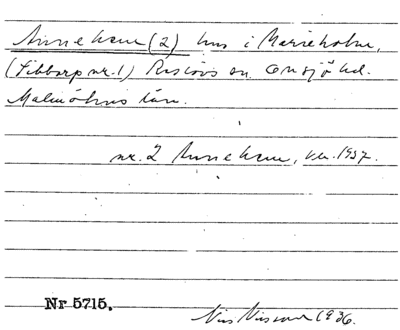 Annehem (2) hus i Marieholm,
(Sibbarp nr. 1) sn. Onsjö hd.
Malmöhus län.
nr. 2 Annehem, 1937.
Nr 5715.
Nils 1936.